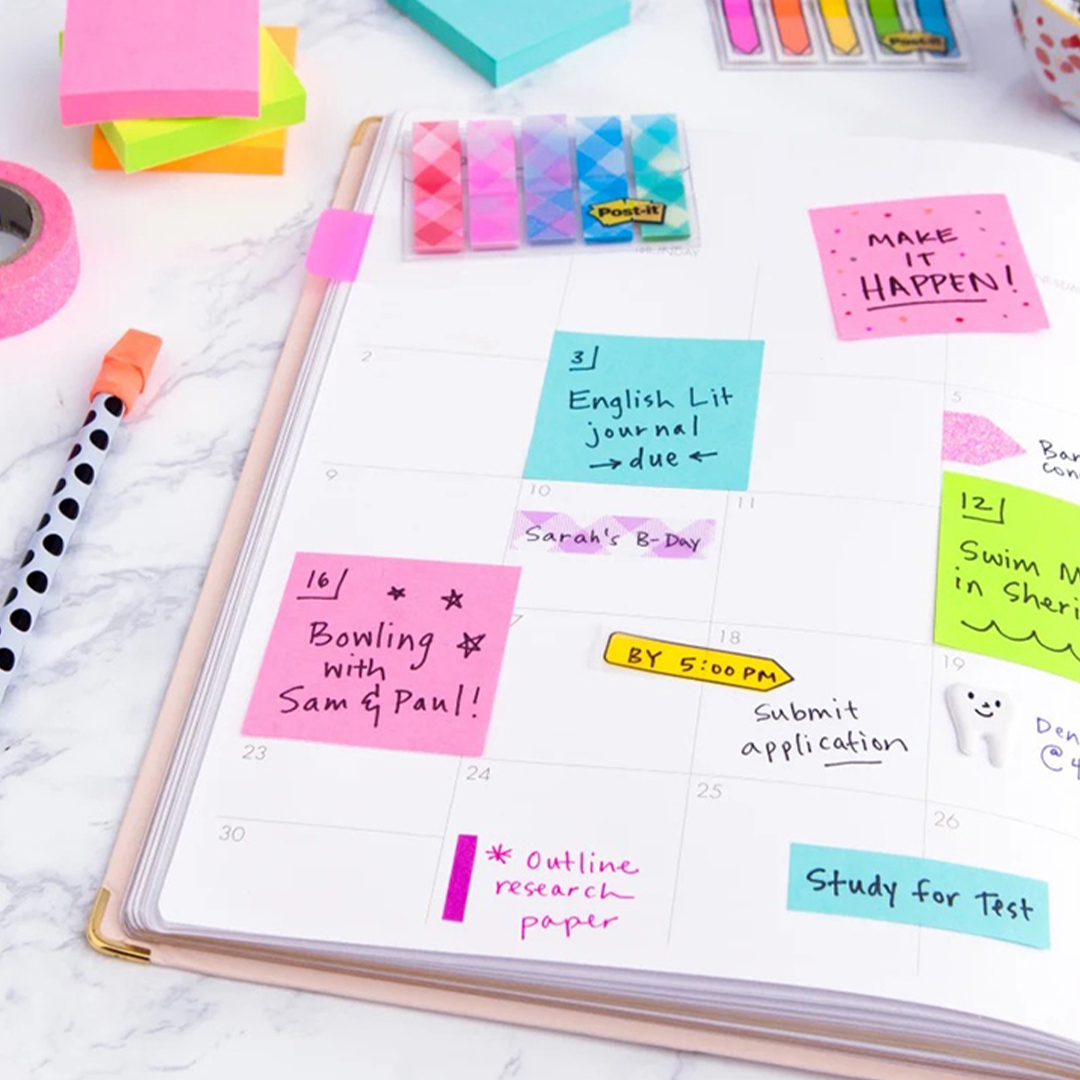 Post-it
Post-it
MAKE
IT
HAPPEN!
2
3
English Lit
journal
→ due ←
5
9
10
Sarah's B-Day
11
12
Swim
in
16
Bowling
with
Sam & Paul!
BY 5:00 PM
18
Submit
application
19
@4
23
24
* Outline
research
paper
25
26
Study for Test
30